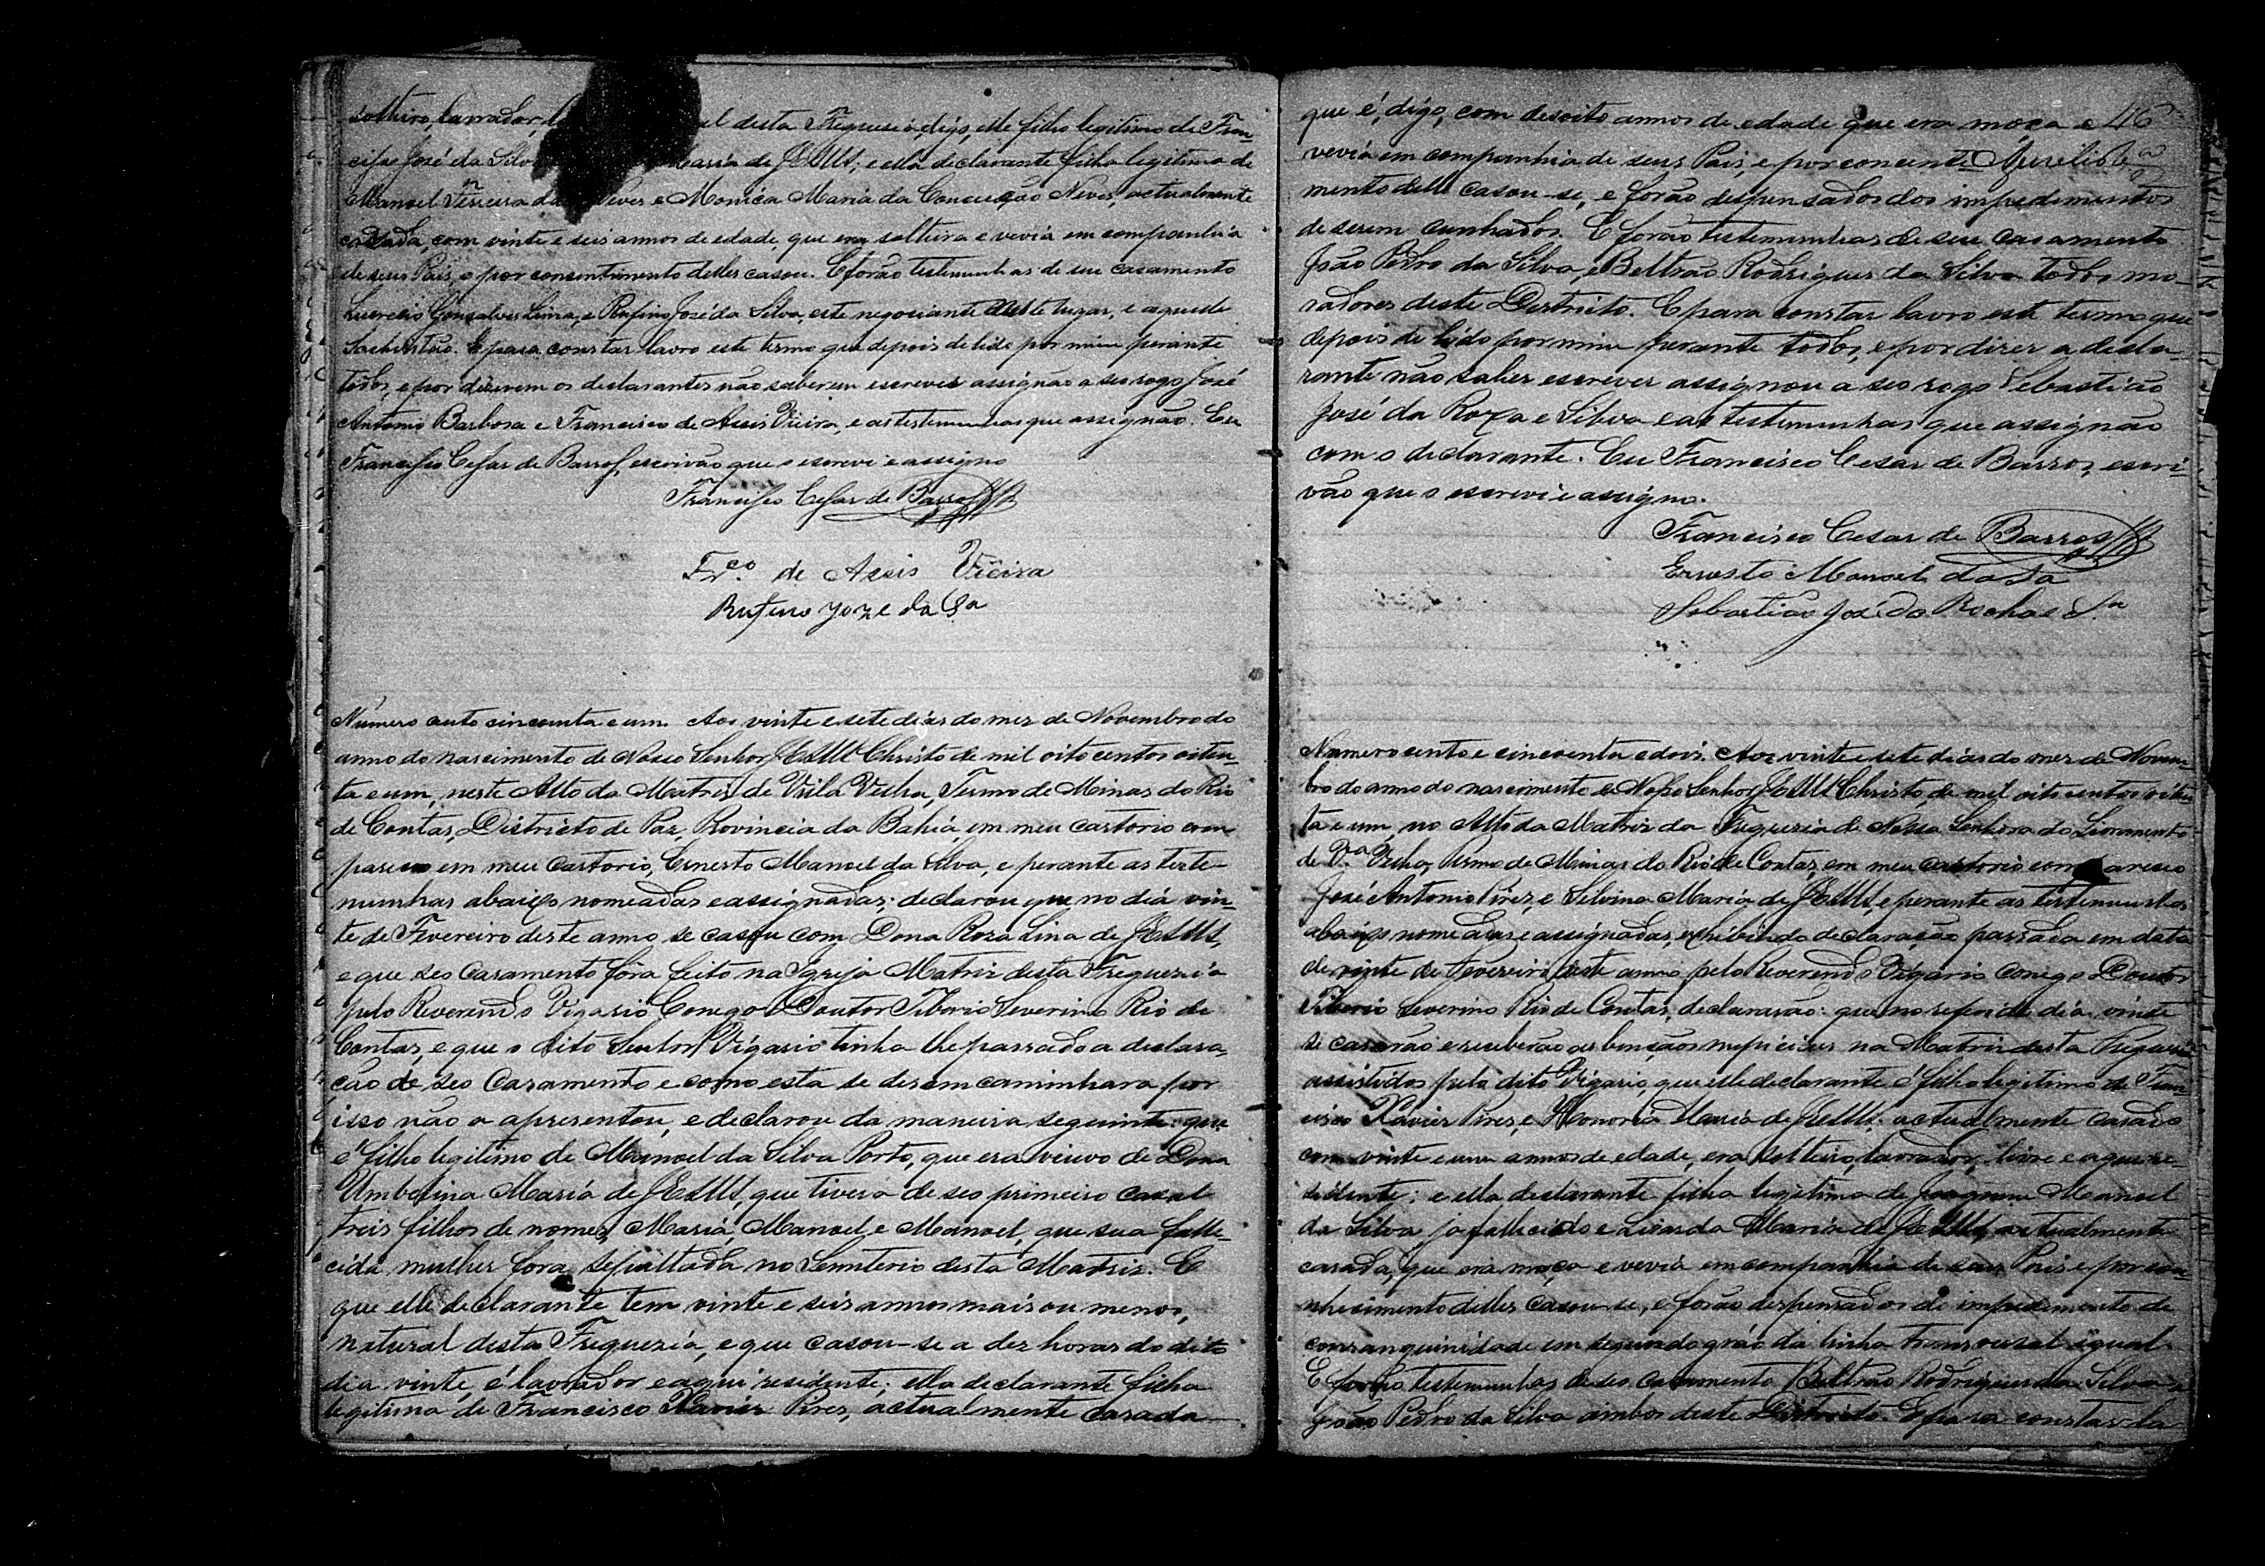 solteiro, lavrador, l desta Freguesia, digo, elle filho legitimo de Fran-
cisco José da Silva Maria de JESUS; e ella declarante filha legitima de
Manoel Teixeira das Neves e Monica Maria da Conceição Neves, actualmente
casada com vinte e seis annos de edade, que era solteira e vevia em companhia
de seus Pais, e por consentimento delles casou. E forão testemunhas de seu casamento
Lucrecio Gonsalves Lima, e Rufino José da Silva, este negociante deste lugar, e aquelle
Sachristão. E para constar lavro este termo que depois de lido por mim perante
todos, e por diserem os declarantes não saberem escrever assignão a seo rogo José
Antonio Barbosa e Francisco de Assis Vieira, e as testemunhas que assignão. Eu
Francisco Cesar de Barros, escrivão que o escrevi e assigno
Francisco Cesar de Barros
Frco. de Assis Vieira
Rufino Joze da Sa
Número cento cincoenta e um. Aos vinte e sete dias do mez de Novembro do
anno do nascimento de Nosso Senhor JESUS Christo de mil oito centos oiten-
ta e um, neste Alto da Matriz de Villa Velha, Termo de Minas do Rio
de Contas, Districto de Paz, Provincia da Bahia, em meu cartorio com-
pareceo em meu cartorio, Ernesto Manoel da Silva, e perante as teste-
munhas abaixo nomeadas e assignadas; declarou que no dia vin-
te de Fevereiro deste anno se casou com Dona Roza Lina de JESUS,
e que seo casamento fôra feito na Igreja Matriz desta Freguezia
pelo Reverendo Vigario Conego Doutor Tiborio Severino Rio de
Contas, e que o dito Senhor Vigario tinha lhe passado a declara-
cão de seo Casamento e como esta se desemcaminhara por
isso não a apresentou, e declarou da maneira seguinte: que
é filho legitimo de Manoel da Silva Porto, que era viuvo de Dona
Umbelina Maria de JESUS, que tivera de seo primeiro casal
treis filhos de nomes Maria, Manoel e Manoel, que sua falle-
cida mulher fora sepultada no Semiterio desta Matriz. E
que elle declarante tem vinte e seis annos mais ou menos,
natural desta Freguezia, e que casou-se a dez horas do dito
dia vinte, é lavrador e aqui residente; ella declarante filha
legitima de Francisco Xavier Pires, actualmente casada
que é, digo, com desoito annos de edade que era moça e 46
vevia em companhia de seus Pais, e por concenti
mento delles casou-se, e forão despensados dos impedimentos
de serem cunhados. E forão testemunhas de seu casamento
João Pedro da Silva, e Beltrão Rodrigues da Silva todos mo-
radores deste Districto. E para constar lavro este termo que
depois de lido por mim perante todos, e por dizer a decla-
rante não saber escrever assignou a seo rogo Sebastião
José da Roxa e Silva e as testemunhas que assignão
com o declarante. Eu Francisco Cesar de Barros, escri-
vão que o escrevi e assigno.
Francisco Cesar de Barros
Ernesto Manoel da Sa
Sebastião José da Rocha e Sa
Numero cento e cincoenta e dois. Aos vinte e sete dias do mez de Novem-
bro do anno do nascimento de Nosso Senhor JESUS Christo, de mil oito centos oiten-
ta e um, no Alto da Matriz da Freguezia de Nossa Senhora do Livramento
de Va. Velha, Termo de Minas do Rio de Contas, em meu cartorio com areceo
José Antonio Pires, e Silvina Maria de JESUS, e perante as testemunhas
abaixo nomeadas e assignadas, exhibindo declaração passada em data
de vinte de Fevereiro deste anno pelo Reverendo Vigario Conego Doutor
Tiborio Severino Rio de Contas, declararão: que no referido dia vinte
se casarão e receberão as bençãos nupiciaes na Matriz desta Freguezia
assistidos pelo dito Vigario, que elle declarante é filho legitimo de Fran-
cisco Xavier Pires, e Honoria Maria de JESUS; actualmente casado
com vinte e um annos de edade, era solteiro, lavrador, livre e aqui re-
sidente; e ella declarante filha legitima de Joaquim Manoel
da Silva ja fallecido e Maria de JESUS, actualmente
casada, que era moça e vevia em companhia de seus Pais e por con-
nhecimento delles casou-se, e forão despensados do impedimento de
consanguinidade em segundo gráo da linha transversal igual.
E forão testemunhas de seo casamento Beltrão Rodrigues da Silva e
João Pedro da Silva ambos deste Districto. E para constar la-